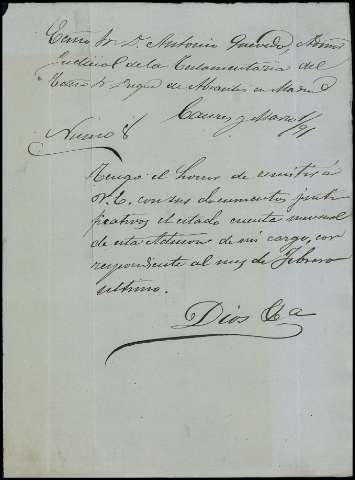 Excmo Sr. Dn. Antonio Quevedo, Admor
Judicial de la Testamentaría del
Excmo Sr Duque de Abrantes en Madrid
Cáceres y Marzo 1/91
Numo 8
Tengo el honor de remitir á
V. E. con sus documentos justi-
ficativos el estado cuenta mensual
de esta Admon de mi cargo, cor-
respondiente al mes de Febrero
ultimo.
Dios &a